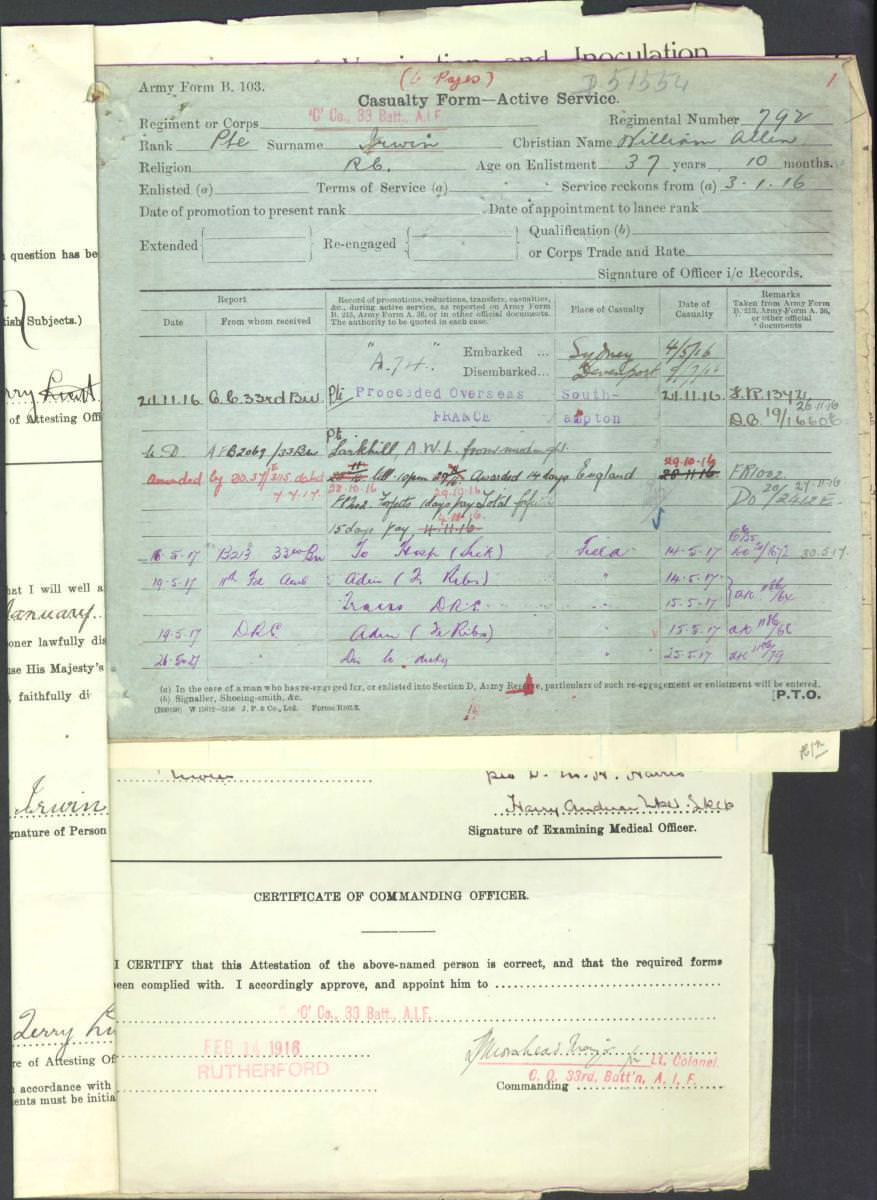 and Inoculation
(6 Pages)
D 51554
1
Army Form B. 103.
Casualty Form—Active Service.
Regiment or Corps 'C' Co., 33 Batt., A.I.F. Regimental Number 792
Rank Pte Surname Irwin Christian Name William Allen
Religion R.C. Age on Enlistment 37 years 10 months.
Enlisted (a) Terms of Service (a) Service reckons from (a) 3.1.16
Date of promotion to present rank Date of appointment to lance rank
Extended Re-engaged Qualification (b)
or Corps Trade and Rate
Signature of Officer i/c Records.
Report
Date From whom received
Record of promotions, reductions, transfers, casualties, &c., during active service, as reported on Army Form B. 213, Army Form A. 36, or in other official documents. The authority to be quoted in each case.
Place of Casualty
Date of Casualty
Remarks
Taken from Army Form B. 213, Army Form A. 36, or other official documents
"A.74." Embarked ... Sydney 4/5/16
Disembarked... Devenport 9/7/16
21.11.16 C.O. 33rd Bn Pte Proceeded Overseas South- 21.11.16
FRANCE ampton 26.11.16
Pte
Larkhill, A.W.L. from midnight
amended by till 10pm Awarded 14 days England 29.10.16 FR1002
7.4.17. 28.10.16 29.10.16 27.11.16
Forfeits 1 days pay Total
15 days pay
16.5.17 B213 33rd Bn To Hosp (Sick) Field 14.5.17 30.5.17
19.5.17 11th Fld Amb Adm (Fr Ribs) " 14.5.17
Trans D.R.S. " 15.5.17
19.5.17 D.R.S. Adm (Fr Ribs) " 15.5.17
26.5.17 " Dis to duty " 25.5.17
(a) In the case of a man who has re-engaged for, or enlisted into Section D, Army Reserve, particulars of such re-engagement or enlistment will be entered.
(b) Signaller, Shoeing-smith, &c. [P.T.O.
question has be
Subjects.)
of Attesting Offi
that I will well a
January
oner lawfully dis
use His Majesty's
faithfully di
Irwin
gnature of Person
Signature of Examining Medical Officer.
CERTIFICATE OF COMMANDING OFFICER.
I CERTIFY that this Attestation of the above-named person is correct, and that the required forms
een complied with. I accordingly approve, and appoint him to
'C' Co., 33 Batt., A.I.F.
FEB 14 1916
RUTHERFORD
Terry
re of Attesting Of
accordance with
ents must be initia
Morshead Major for Lt. Colonel.
C. O. 33rd. Batt'n, A. I. F.
Commanding